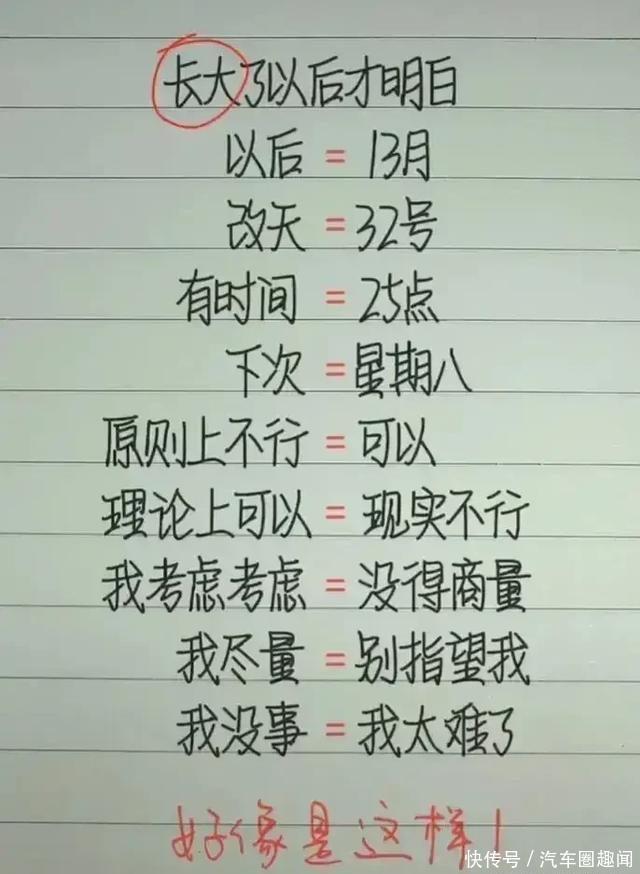 长大了以后才明白
以后 = 13月
改天 = 32号
有时间 = 25点
下次 = 星期八
原则上不行 = 可以
理论上可以 = 现实不行
我考虑考虑 = 没得商量
我尽量 = 别指望我
我没事 = 我太难了
好像是这样!
快传号/汽车圈趣闻